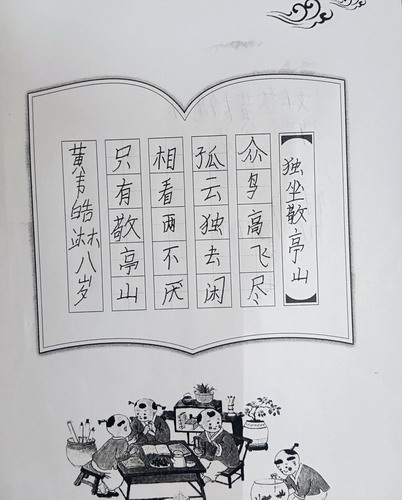 独坐敬亭山
众鸟高飞尽
孤云独去闲
相看两不厌
只有敬亭山
黄韦皓淋八岁